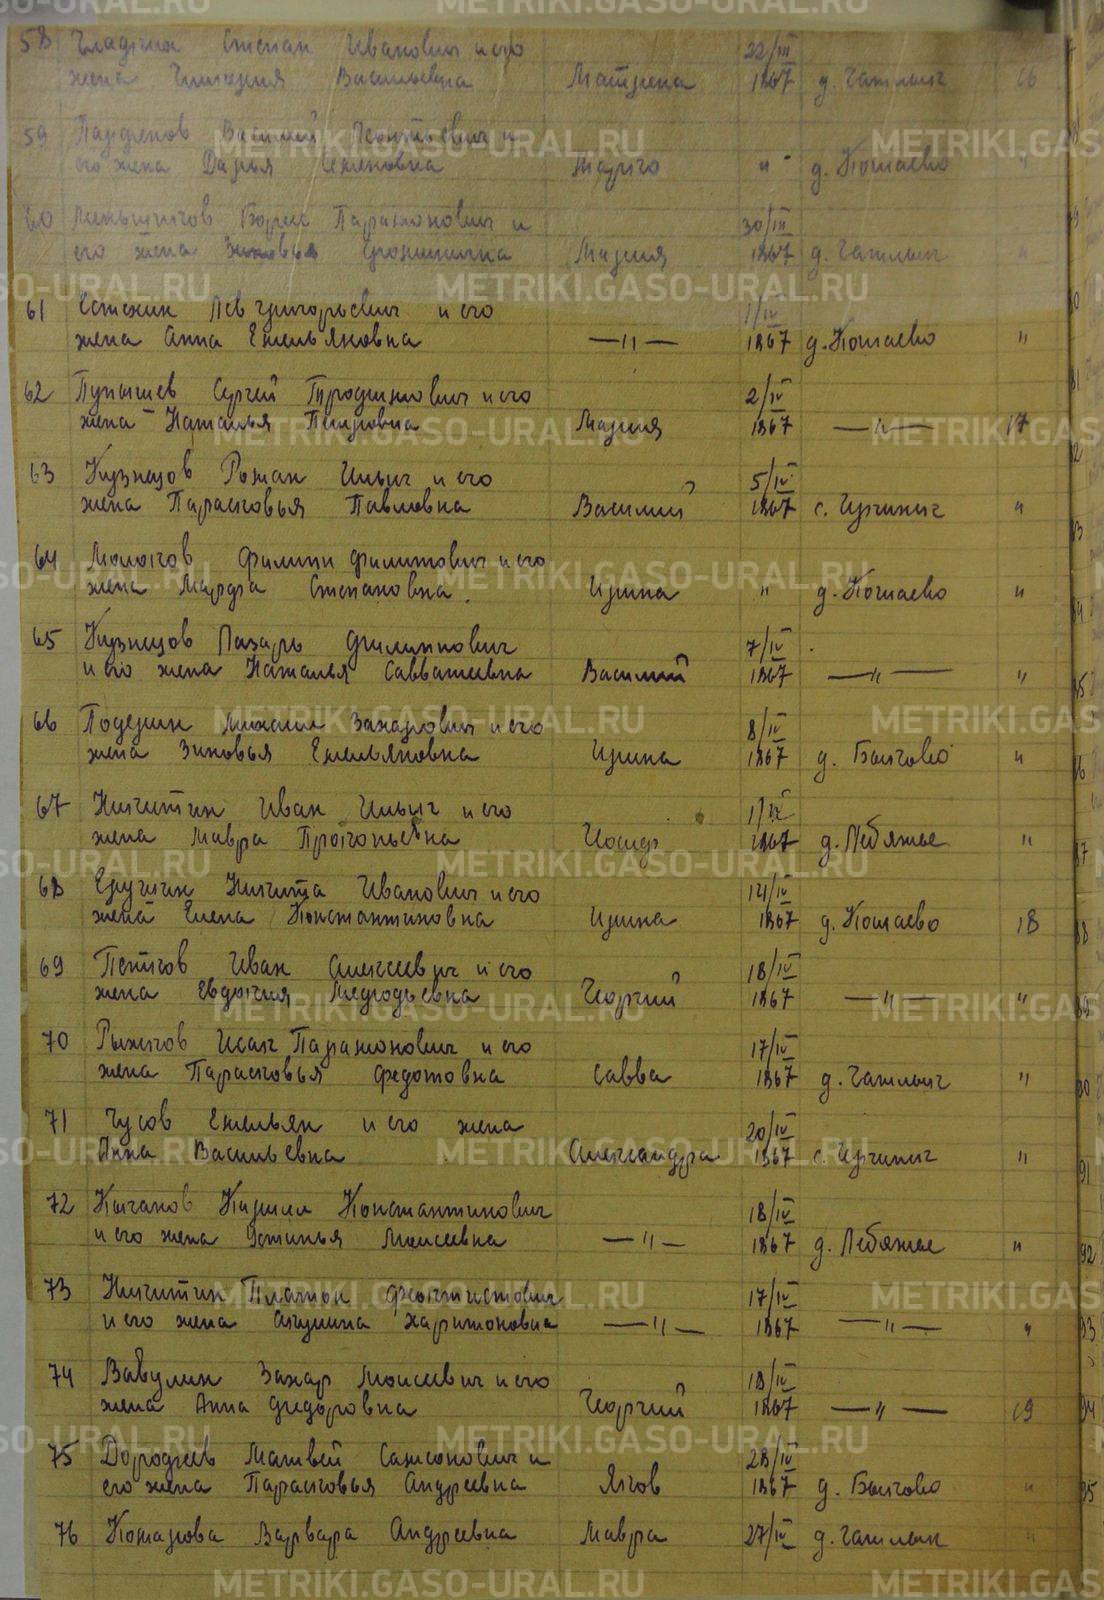 58 Гладких Степан Иванович и его 22/III
жена Гликерия Васильевна Матрена 1867 д. Чатлык 16
59 Парфенов Василий Леонтьевич и
его жена Дарья Семеновна Марко " д. Кошаево "
60 Меньшиков Борис Парамонович и 30/III
его жена Зиновья Мария 1867 д. Чатлык "
61 Стенин Лев Григорьевич и его 1/IV
жена Анна Емельяновна —"— 1867 д. Кошаево "
62 Пупышев Сергей Трофимович и его 2/IV
жена Наталья Петровна Мария 1867 —"— 17
63 Кузнецов Роман Ильич и его 5/IV
жена Парасковья Павловна Василий 1867 с. Киргишаны "
64 Молоков Филипп Филиппович и его
жена Марфа Степановна Ирина " д. Кошаево "
65 Кузнецов Лазарь Филиппович 7/IV
и его жена Наталья Савватеевна Василий 1867 —"— "
66 Подерин Михаил Захарович и его 8/IV
жена Зиновья Емельяновна Ирина 1867 д. Быково "
67 Никитин Иван Ильич и его 1/IV
жена Мавра Прокопьевна Иосиф 1867 д. Лебяжье "
68 Еружин Никита Иванович и его 14/IV
жена Елена Константиновна Ирина 1867 д. Кошаево 18
69 Петков Иван Алексеевич и его 18/IV
жена Евдокия Мефодьевна Георгий 1867 —"— "
70 Рыжков Исак Парамонович и его 17/IV
жена Парасковья Федотовна Савва 1867 д. Чатлык "
71 Чусов Емельян и его жена 20/IV
Анна Васильевна Александра 1867 с. "
72 Кычанов Кирилл Константинович 18/IV
и его жена Устинья Моисеевна —"— 1867 д. Лебяжье "
73 Никитин Платон Феоктистович 17/IV
и его жена Акулина Харитоновна —"— 1867 —"— "
74 Вавулин Захар Моисеевич и его 18/IV
жена Анна Федоровна Георгий 1867 —"— 19
75 Дорофеев Матвей Самсонович и 28/IV
его жена Парасковья Андреевна Яков 1867 д. Быково "
76 Комарова Варвара Андреевна Мавра 27/IV д. Чатлык "
METRIKI.GASO-URAL.RU